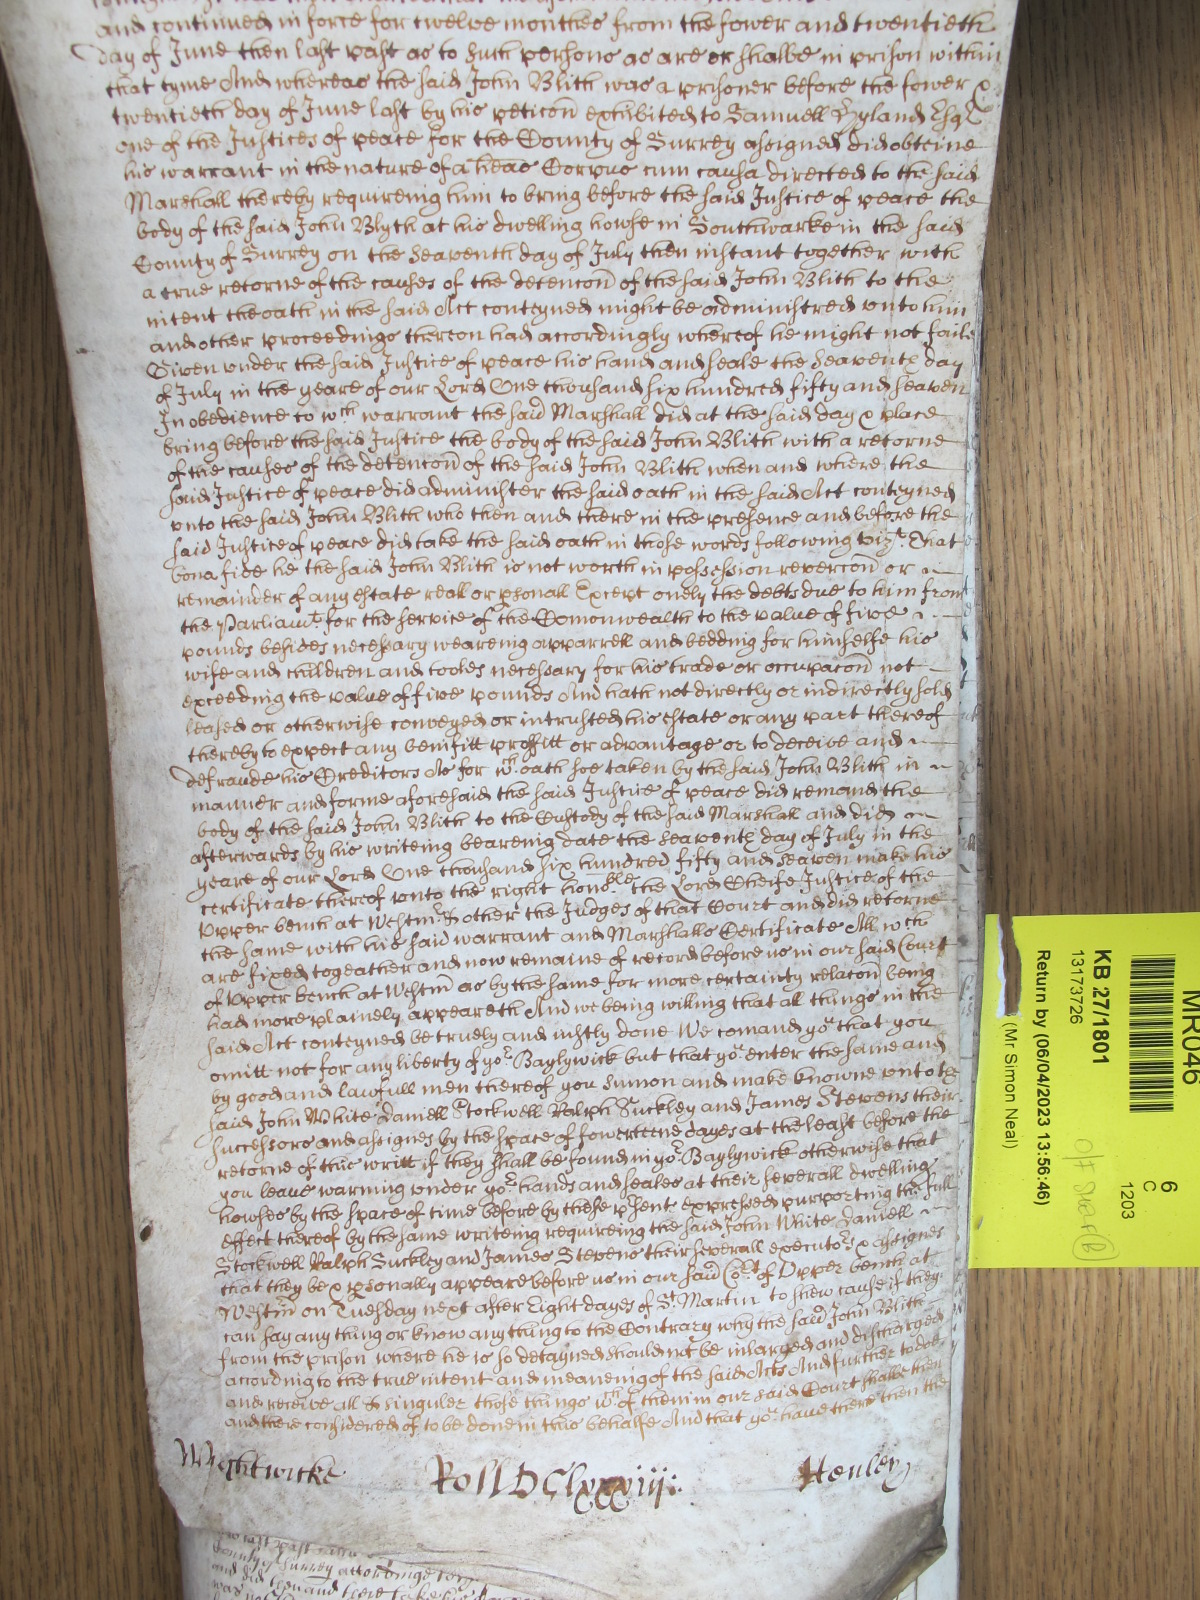 and continued in force for twelve monthes from the fower and twentieth
day of June then last past as to such persons as are or shalbe in prison within
that tyme And whereas the said John Blith was a prisoner before the fower &
twentieth day of June last by his peticon exhibited to Samuell Hyland Esqr
one of the Justices of peace for the County of Surrey assigned did obteine
his warrant in the nature of a heas Corpus cum causa directed to the said
Marshall thereby requireing him to bring before the said Justice of peace the
body of the said John Blyth at his dwelling howse in Southwarke in the said
County of Surrey on the Seaventh day of July then instant together with
a true retorne of the causes of the detencon of the said John Blith to the
intent the oath in the said Act conteyned might be administred vnto him
and other proceedings thereon had accordingly whereof he might not faile
Given vnder the said Justice of peace his hand and seale the Seaventh day
of July in the yeare of our Lord One thousand six hundred fifty and seaven
In obedience to wch warrant the said Marshall did at the said day & place
bring before the said Justice the body of the said John Blith with a retorne
of the causes of the detencon of the said John Blith when and where the
said Justice of peace did administer the said oath in the said Act conteyned
vnto the said John Blith who then and there in the presence and before the
said Justice of peace did take the said oath in these words following vizt. That
bona fide he the said John Blith is not worth in possession revercon or
remainder of any estate reall or psonall Except onely the debts due to him from
the Parliamt. for the service of the Comonwealth to the value of five
pounds besides necessary weareing apparrell and bedding for himselfe his
wife and children and tooles necessary for his trade or occupacon not
exceeding the value of five pounds And hath not directly or indirectly sold
leased or otherwise conveyed or intrusted his estate or any part thereof
thereby to expect any benifitt proffitt or advantage or to deceive and
defraude his Creditors As for wch. oath soe taken by the said John Blith in
manner and forme aforesaid the said Justice of peace did remand the
body of the said John Blith to the Custody of the said Marshall and did
afterwards by his writeing beareing date the Seaventh day of July in the
yeare of our Lord One thousand six hundred fifty and seaven make his
certificate thereof vnto the right honoble the Lord Cheife Justice of the
Vpper bench at Westmr. & other the Judges of that Court and did retorne
the same with his said warrant and Marshalls Certificate All wch
are fixed togeather and now remaine of record before us in our said Court
of Vpper bench at Westm as by the same for more certainty relacon being
had more plainely appeareth And we being willing that all things in the
said Act conteyned be truely and iustly done We comand yow that you
omitt not for any liberty of yor. Baylywick but that yow enter the same and
by good and lawfull men thereof you sumon and make knowne vnto the
said John White Daniell Stockwell Ralph Suckley and James Stevens their
successors and assignes by the space of fowerteene dayes at the least before the
retorne of this writt if they shall be found in yor. Baylywick otherwise that
you leave warning vnder yor. hands and seales at their severall dwelling
howses by the space of time before by these psents expressed purporting the full
effect thereof by the same writeing requireing the said John White Daniell
Stockwell Ralph Suckley and James Stevens their severall executors & assignes
that they be & psonally appeare before us in our said Cort of Vpper bench at
Westm on Tuesday next after Eight dayes of St. Martin to shew cause if they
can say any thing or know any thing to the Contrary why the said John Blith
from the prison where he is so detayned should not be inlarged and discharged
according to the true intent and meaneing of the said Acts And further to doe
and receive all & singuler those things wch of them in our said Court shalbe then
and there considered of to be done in this behalfe And that yow have there then the
Wightwicke Roll DClxxxiij: Henley
last past
County of Surrey according to
and did then and there take his
MR046
6
C
1203
KB 27/1801
13173726
Return by (06/04/2023 13:56:46)
(Mr Simon Neal)